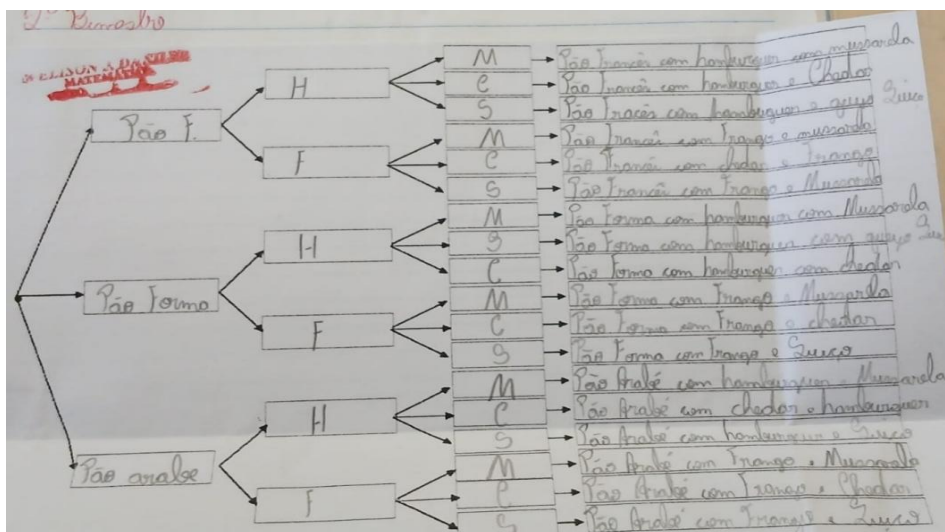 2º Bimestre
MATEMÁTICA
Pão F.
H
M
Pão Francês com hamburguer mussarela
C
Pão Francês com hamburguer e Chedar
S
Pão Fracês com hamburguer e queijo Suiço
F
M
Pão Francês com Frango e mussarela
C
Pão Francêi com chedar e Frango
S
Pão Francêi com Frango e Mussarela
Pão Forma
H
M
Pão Forma com hamburguer com Mussarela
S
Pão Forma com hamburguer com queijo
C
Pão Forma com hamburguer com chedar
F
M
Pão Forma com Frango e Mussarela
C
Pão Forma com Frango e chedar
S
Pão Forma com Frango e Suiço
Pão arabe
H
M
Pão Arabé com hamburguer e Mussarela
C
Pão Arabé com chedar e hamburguer
S
Pão Arabé com hamburguer e Suiço
F
M
Pão Arabé com Frango e Mussarela
C
Pão Arabé com Frango e Chedar
S
Pão Arabé com Frango e Suiço